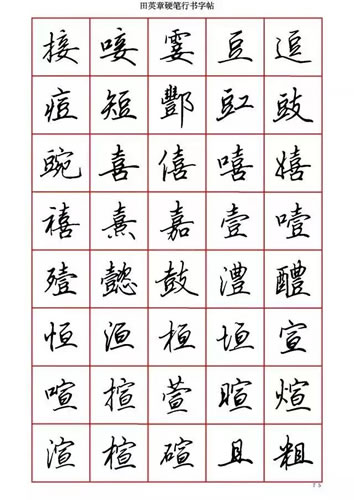 田英章硬笔行书字帖
接 唼 霎 豆 逗
痘 短 酆 豇 豉
豌 喜 僖 嘻 嬉
禧 熹 嘉 壹 噎
殪 懿 鼓 澧 醴
恒 洹 桓 垣 宣
喧 揎 萱 暄 煊
渲 楦 碹 且 粗
75